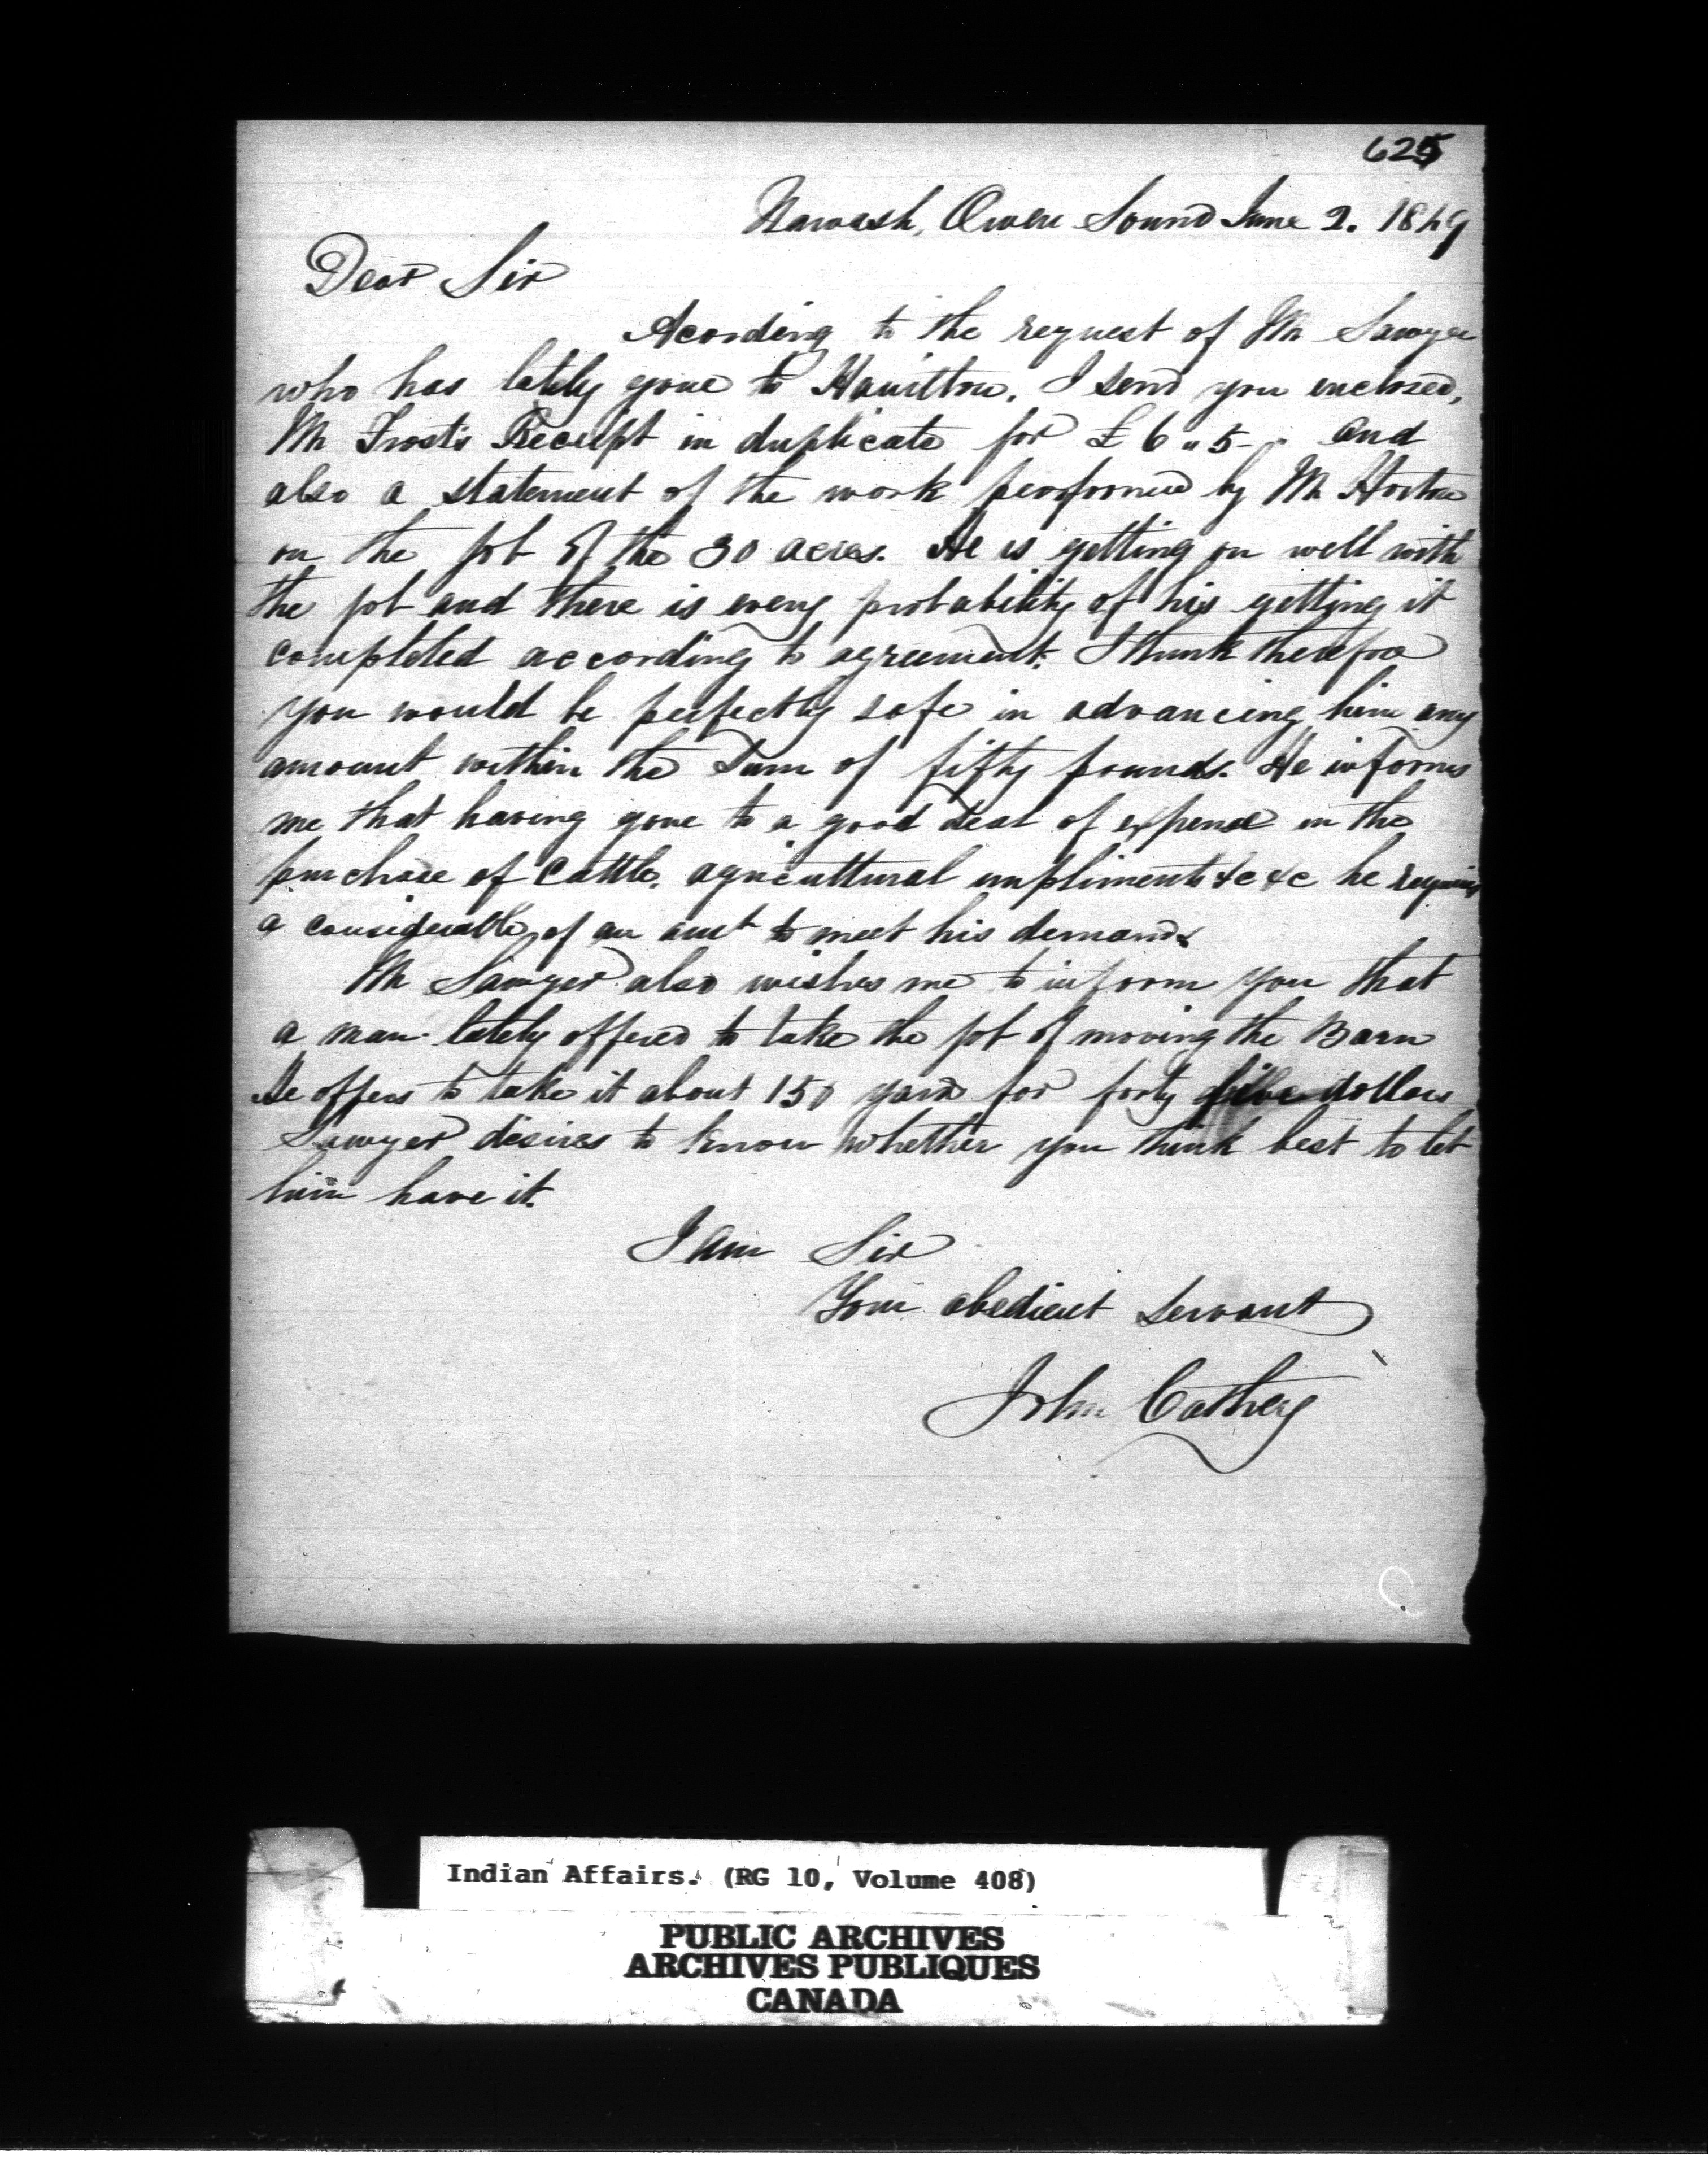 625
Nawash, Owen Sound June 2. 1849
Dear Sir
Acording to the request of Mr Sawyer
who has lately gone to Hamilton. I send you enclosed,
Mr Frost's Receipt in duplicate for £ 6 " 5 - " and
also a statement of the work performed by Mr Horton
on the job of the 30 acres. He is getting on well with
the job and there is every probability of his getting it
completed according to agreement. I think therefore
you would be perfectly safe in advancing him any
amount within the sum of fifty pounds. He informs
me that having gone to a good deal of expense in the
purchase of Cattle, agricultural impliments &c &c he requires
a considerable of an amt to meet his demands
Mr Sawyer also wishes me to inform you that
a man lately offered to take the job of moving the Barn
He offers to take it about 150 yards for forty five dollars
Sawyer desires to know whether you think best to let
him have it.
I am Sir
Your obedient servant
John Cathey
Indian Affairs. (RG 10, Volume 408)
PUBLIC ARCHIVES
ARCHIVES PUBLIQUES
CANADA